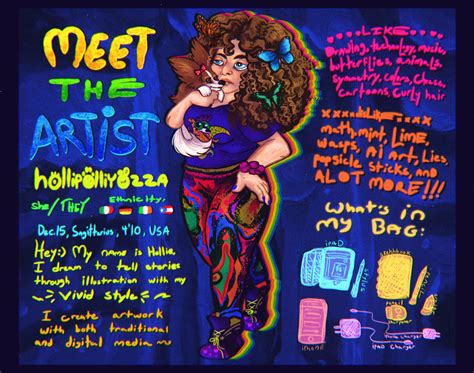 MEET
THE
ARTIST
hollipolliyozza
She/THEY
Ethnicity:
Dec.15, Sagittarius, 4'10, USA
Hey:) My name is Hollie.
I dream to tell stories
through illustration with my
Vivid style
I create artwork
with both traditional
and digital media
LIKE
Drawing, technology, music,
butterflies, animals,
Symmetry, colors, Chaos,
Cartoons, Curly hair
xxxxdisLikexxxx
math, mint, LIME,
wasps, Ai Art, Lies,
popsicle sticks, and
ALOT MORE!!!
What's in
my BAG:
iPAD
pencil
sharpener
iphone
iPAD charger